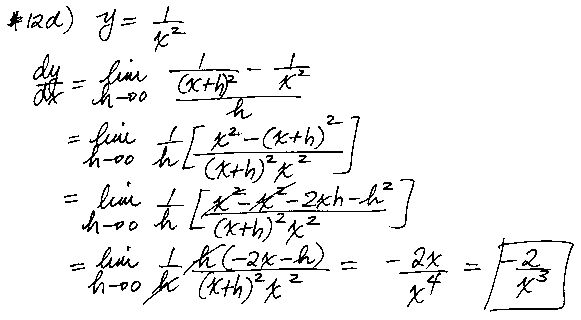 #12d) y = 1/x²
dy/dx = lim h→0 (1/(x+h)² - 1/x²)/h
= lim h→0 1/h [(x² - (x+h)²)/((x+h)² x²)]
= lim h→0 1/h [(x² - x² - 2xh - h²)/((x+h)² x²)]
= lim h→0 1/h h(-2x-h)/((x+h)² x²) = -2x/x⁴ = -2/x³